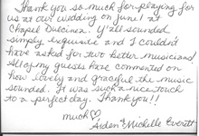 Thank you so much for playing for
us at our wedding on June 1 at
Chapel Dulcinea. Y'all sounded
simply exquisite and I couldn't
have asked for two better musicians!
All of my guests have commented on
how lovely and graceful the music
sounded. It was such a nice touch
to a perfect day. Thank you!!
much ♡,
Aidan & Michelle Everett